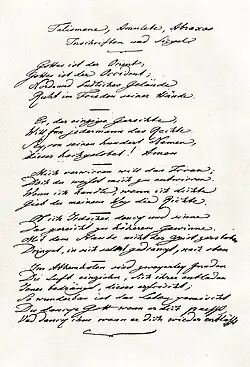 Talismane, Amulete, Abraxas
Inschriften und Siegel
Gottes ist der Orient,
Gottes ist der Occident;
Nord und südliches Gelände
Ruht im Frieden seiner Hände.
Er, der einzige Gerechte
Will für jedermann das Rechte
Sey, von seinen hundert Namen,
Dieser hochgelobet! Amen
Mich verwirren will das Irren,
Doch du weißt mich zu entwirren.
Wenn ich handle, wenn ich dichte
Gieb du meinem Weg die Richte.
Ob ich Irdsches denck und sinne
Das gereicht zu höherem Gewinne.
Mit dem Staube nicht der Geist zerstoben
Dringet, in sich selbst gedrängt, nach oben
Im Athemholen sind zweyerley Gnaden
Die Luft einziehn, sich ihrer entladen
Jenes bedrängt, dieses erfrischt;
So wunderbar ist das Leben gemischt
Du dancke Gott wenn er dich presst
Und danck ihm wenn er dich wieder entlässt